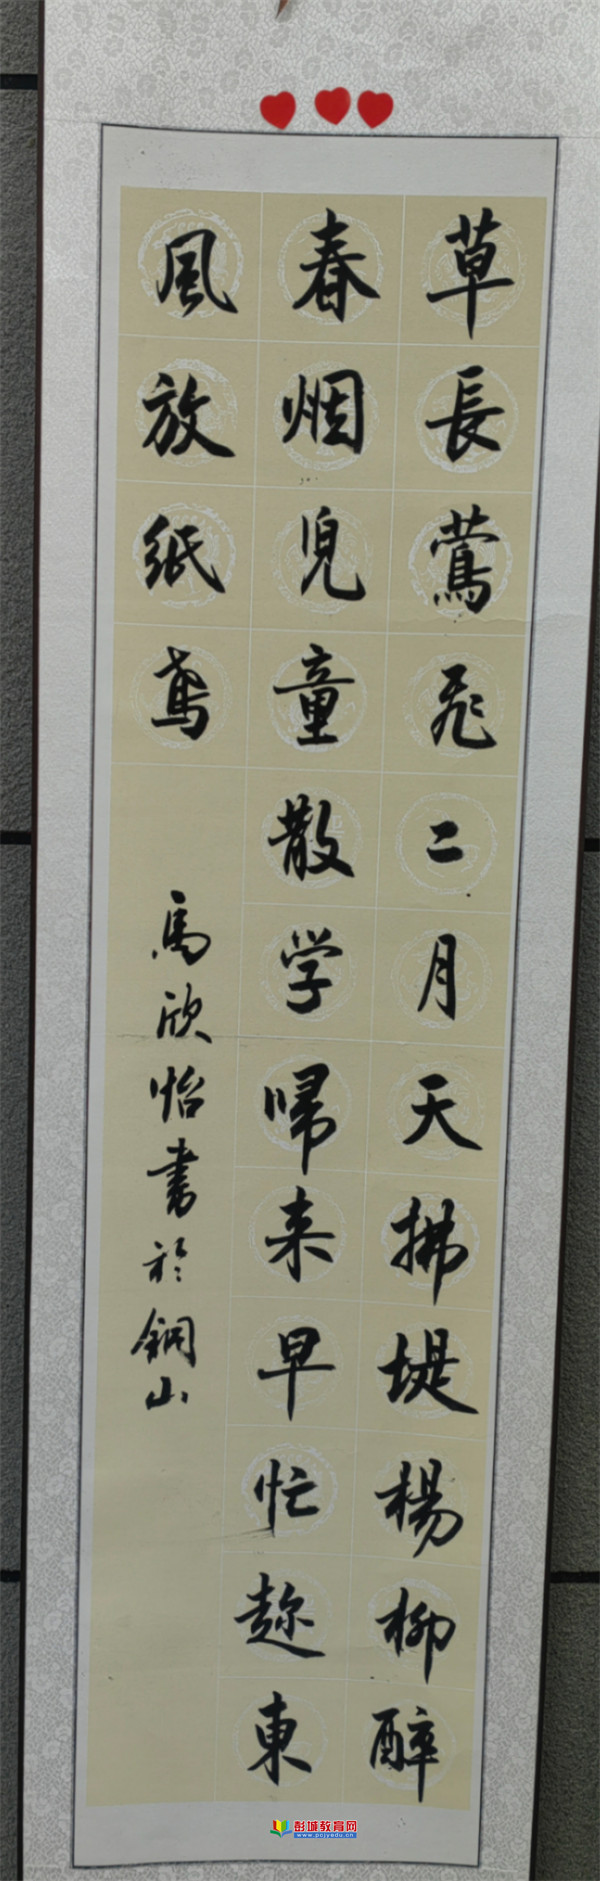 草長鶯飛二月天拂堤楊柳醉
春烟兒童散学歸来早忙趂東
風放纸鸢
馬欣怡書於銅山
彭城教育网
www.pcjyedu.cn